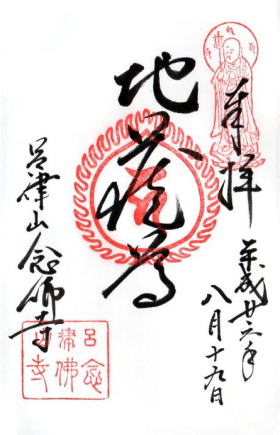 奉拝
平成廿二年
八月十九日
地蔵尊
呂津山念佛寺
呂津山
念佛寺